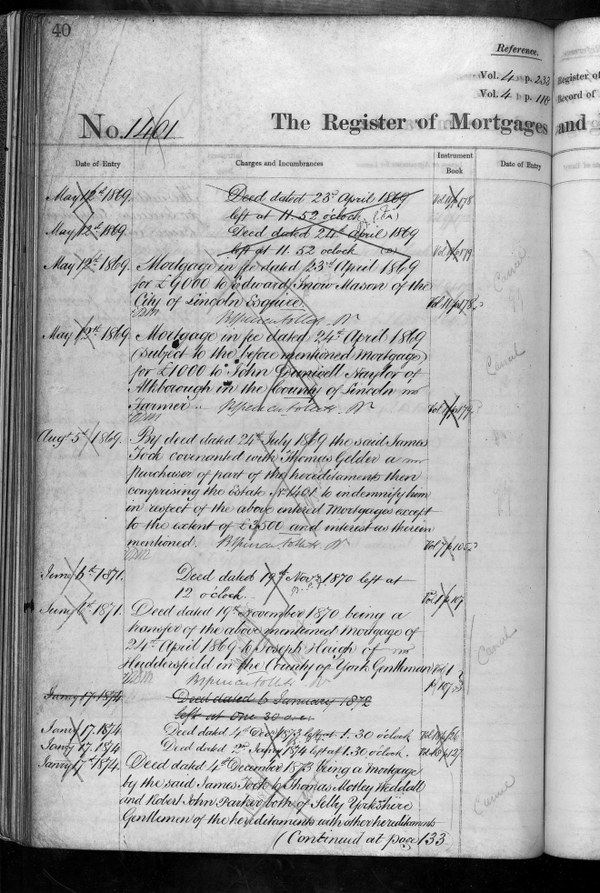 40
Reference.
Vol. 4 p. 233
Vol. 4 p. 118
Register of
Record of
No. 1401
The Register of Mortgages and
Date of Entry
Charges and Incumbrances
Instrument Book
Date of Entry
May 12th 1869. Deed dated 23rd April 1869
left at 11.52 o'clock
May 12th 1869. Deed dated 24th April 1869
left at 11.52 o'clock
May 12th 1869. Mortgage in fee dated 23rd April 1869
for £9000 to Edward Snow Mason of the
City of Lincoln Esquire
May 12th 1869 Mortgage in fee dated 24th April 1869
(subject to the before mentioned Mortgage)
for £1000 to John Naylor of
Alkborough in the County of Lincoln
Farmer
Augt 5th 1869. By deed dated 24th July 1869 the said James
Tock covenanted with Thomas Gelder a
purchaser of part of the hereditaments then
comprising the Estate No 1401 to indemnify him
in respect of the above entered Mortgages except
to the extent of £3,500 and interest as therein
mentioned.
6th 1871. Deed dated 19th Novr 1870 left at
12 o'clock
6th 1871. Deed dated 19th November 1870 being a
transfer of the above mentioned Mortgage of
24th April 1869 to Joseph Haigh of
Huddersfield in the County of York Gentleman
Janry 17. 1874 Deed dated 6 January 1872
left at one 30
Janry 17. 1874 Deed dated 4th Decr 1873 left at 1.30 o'clock
Janry 17. 1874 Deed dated 2nd Janry 1874 left at 1.30 o'clock.
Janry 17th 1874. Deed dated 4th December 1873 being a Mortgage
by the said James Tock to Thomas Motley Weddall
and Robert John Parker both of Selby Yorkshire
Gentlemen of the hereditaments with other hereditaments
(Continued at page 133
Cancel
Cancel
Cancel
Cancel